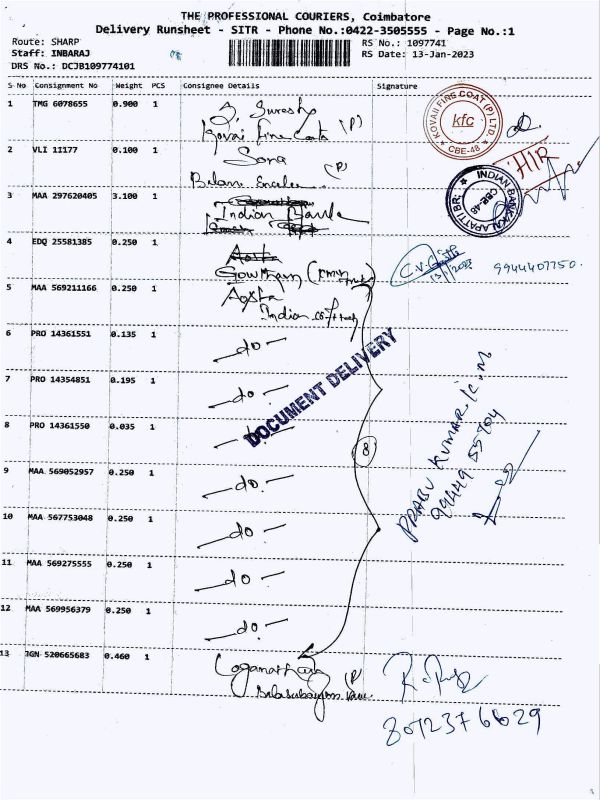 THE PROFESSIONAL COURIERS, Coimbatore
Delivery Runsheet - SITR - Phone No.:0422-3505555 - Page No.:1
Route: SHARP
RS No.: 1097741
Staff: INBARAJ
RS Date: 13-Jan-2023
DRS No.: DCJB109774101
S No Consignment No Weight PCS Consignee Details Signature
1 TMG 6078655 0.900 1 Suresh
Kovai Fine Coats (P)
KOVAI FINE COAT (P) LTD.
kfc
* CBE-48 *
2 VLI 1I177 0.100 1 Sona
(P)
HIR
3 MAA 297620405 3.100 1
Indian Bank
INDIAN BANK
CBE-48
4 EDQ 25581385 0.250 1
Gowtham
13/1/2023
9944407750.
5 MAA 569211166 0.250 1
Indian
6 PRO 14361551 0.135 1 -do-
7 PRO 14354851 0.195 1 -do-
DOCUMENT DELIVERY
8 PRO 14361550 0.035 1 -do-
8
PRABU KUMAR.K.M
99449 55704
9 MAA 569052957 0.250 1 -do-
10 MAA 567753048 0.250 1 -do-
11 MAA 569275555 0.250 1 -do-
12 MAA 569956379 0.250 1 -do-
13 IGN 520665683 0.460 1 (P)
8072376629